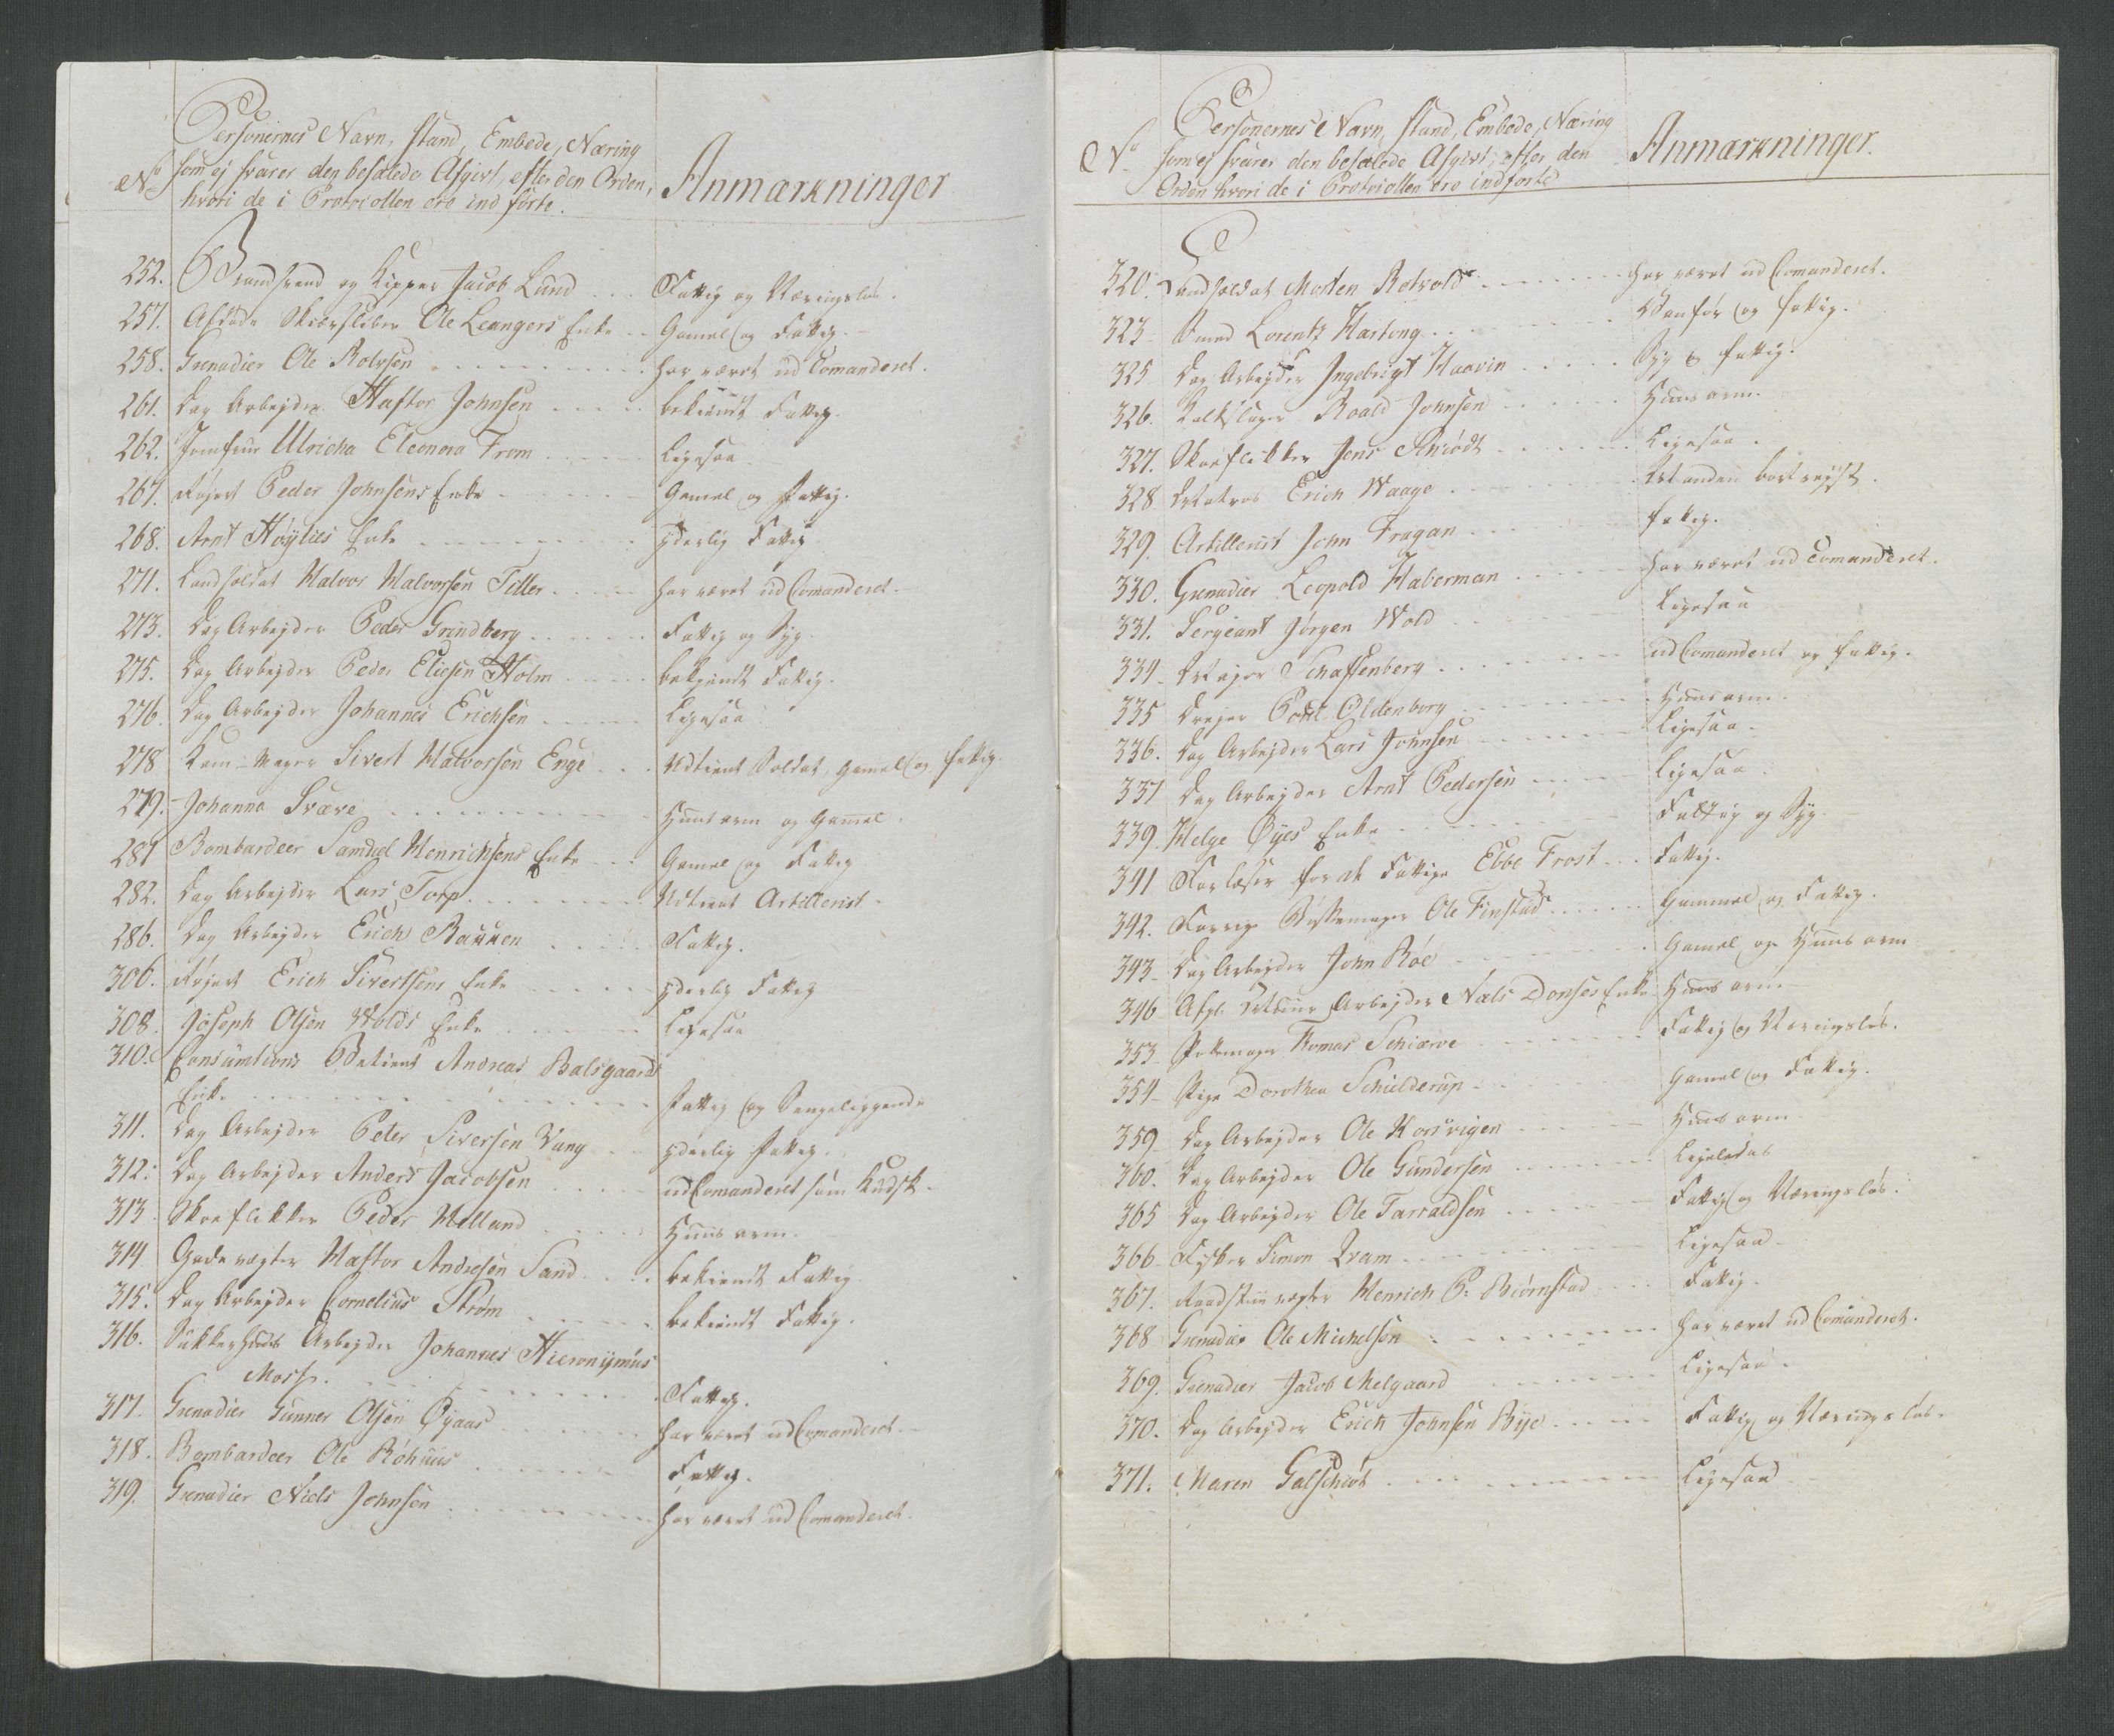 Personernes Navn, stand, Embede, Næring
No som ej svarer den befalede Afgivt, efter den Orden,
hvori de i Protocollen ere ind førte.
Anmærkninger
252. Brandsvend og Kipper Jacob Lund . . . Fattig og Næringsløs.
257. Afdøde Skiærsliber Ole Leangers Enke . . Gamel og Fattig.
258. Grenadier Ole Rolvsen . . . har været ud Comanderet.
261. Dag Arbejder Haftor Johnsen . . . bekiendt Fattig.
262. Jomfrue Ulricha Eleonora From . . . Ligesaa
267. Røjert Peder Johnsens Enke . . . Gamel og fattig.
268. Arnt Høylies Enke . . . yderlig Fattig
271. Landsoldat Halvor Halvorsen Tiller . . . har været ud Comanderet.
273. Dag Arbejder Peder Grindberg . . . Fattig og Syg.
275. Dag Arbejder Peder Eliesen Holm . . . bekiendt Fattig.
276. Dag Arbejder Johannes Erichsen . . . Ligesaa
278 Kam-Mager Sivert Halvorsen Enge . . . Udtient Soldat, gamel og fattig.
279. Johanna Svære . . . Huusarm og Gamel.
281 Bombardeer Samuel Henrichsens Enke . . . Gamel og Fattig
282. Dag Arbejder Lars Torp . . . Udtient Artillerist.
286. Dag Arbejder Erich Bakken . . . Fattig.
306. Røjert Erich Sivertsens Enke . . . yderlig Fattig
308. Joseph Olsen Wolds Enke . . . Ligesaa
310. Consumtions Betient Andreas Balsgaards
Enke . . . fattig og Sengeliggende
311. Dag Arbejder Peter Siversen Vang . . . yderlig fattig.
312. Dag Arbejder Anders Jacobsen . . . ud Comanderet som Kudsk.
313 Skoeflikker Peder Helland . . . Huusarm.
314 Gade vægter Haftor Andresen Sand . . . bekiendt Fattig
315. Dag Arbejder Cornelius Strøm . . . bekiendt Fattig.
316. Sukkerhuus Arbejder Johannes Hieronijmus
Moss. . . . Fattig.
317. Grenadier Gunner Olsen Øyaas . . . har været ud Comanderet.
318. Bombardeer Ole Røhuus . . . Fattig.
319. Grenadier Niels Johnsen . . . har været ud Comanderet.
Personernes Navn, stand, Embede, Næring
No som ej svarer den befalede Afgivt, efter den
Orden hvori de i Protocollen ere indførte
Anmærkninger.
320. Landsoldat Morten Rotvold . . . har været ud Comanderet.
323 Smed Lorentz Hartong . . . Vanfør og fattig.
325 Dag Arbejder Ingebrigt Haavin . . . Syg og fattig.
326. Kalkslager Roald Johnsen . . . Huusarm.
327. Skoeflikker Jens Schiødt . . . Ligesaa.
328 Matros Erich Waage . . . Manden bortrejst.
329. Artillerist John Fragan . . . fattig.
330. Grenadier Leopold Haberman . . . har været ud Comanderet.
331. Sergeant Jørgen Wold . . . Ligesaa
334 Major Schaffenberg . . . ud Comanderet og fattig.
335 Drejer Poul Oldenborg . . . Huusarm.
336. Dag Arbejder Lars Johnsen . . . Ligesaa.
337 Dag Arbejder Arnt Pedersen . . . Ligesaa
339. Helge Øyes Enke . . . Fattig og Syg.
341 Forlæser for de Fattige Ebbe Frost . . . Fattig.
342. Forrige Bøssemager Ole Finstad . . . Gammel og Fattig.
343 Dag Arbejder John Røe . . . Gamel og Huusarm
346 Afg. Muur Arbejder Niels Donses Enke Huusarm
353 Pottemager Thomas Schiærve . . . Fattig og Næringsløs.
354 Pige Dorothea Schielderup . . . Gamel og Fattig.
359 Dag Arbejder Ole Korsvigen . . . Huusarm
360. Dag Arbejder Ole Gundersen . . . Ligeledes
365 Dag Arbejder Ole Tarraldsen . . . Fattig og Næringsløs.
366 Fisker Simon Qvam . . . Ligesaa
367. Raadstue vægter Henrich P. Biørnstad . . . Fattig.
368 Grenadier Ole Michelsen . . . har været ud Comanderet.
369. Grenadier Jacob Melgaard . . . Ligesaa.
370. Dag Arbejder Erich Johnsen Bye . . . Fattig og Næringsløs.
371. Maren Galschiøt . . . Ligesaa